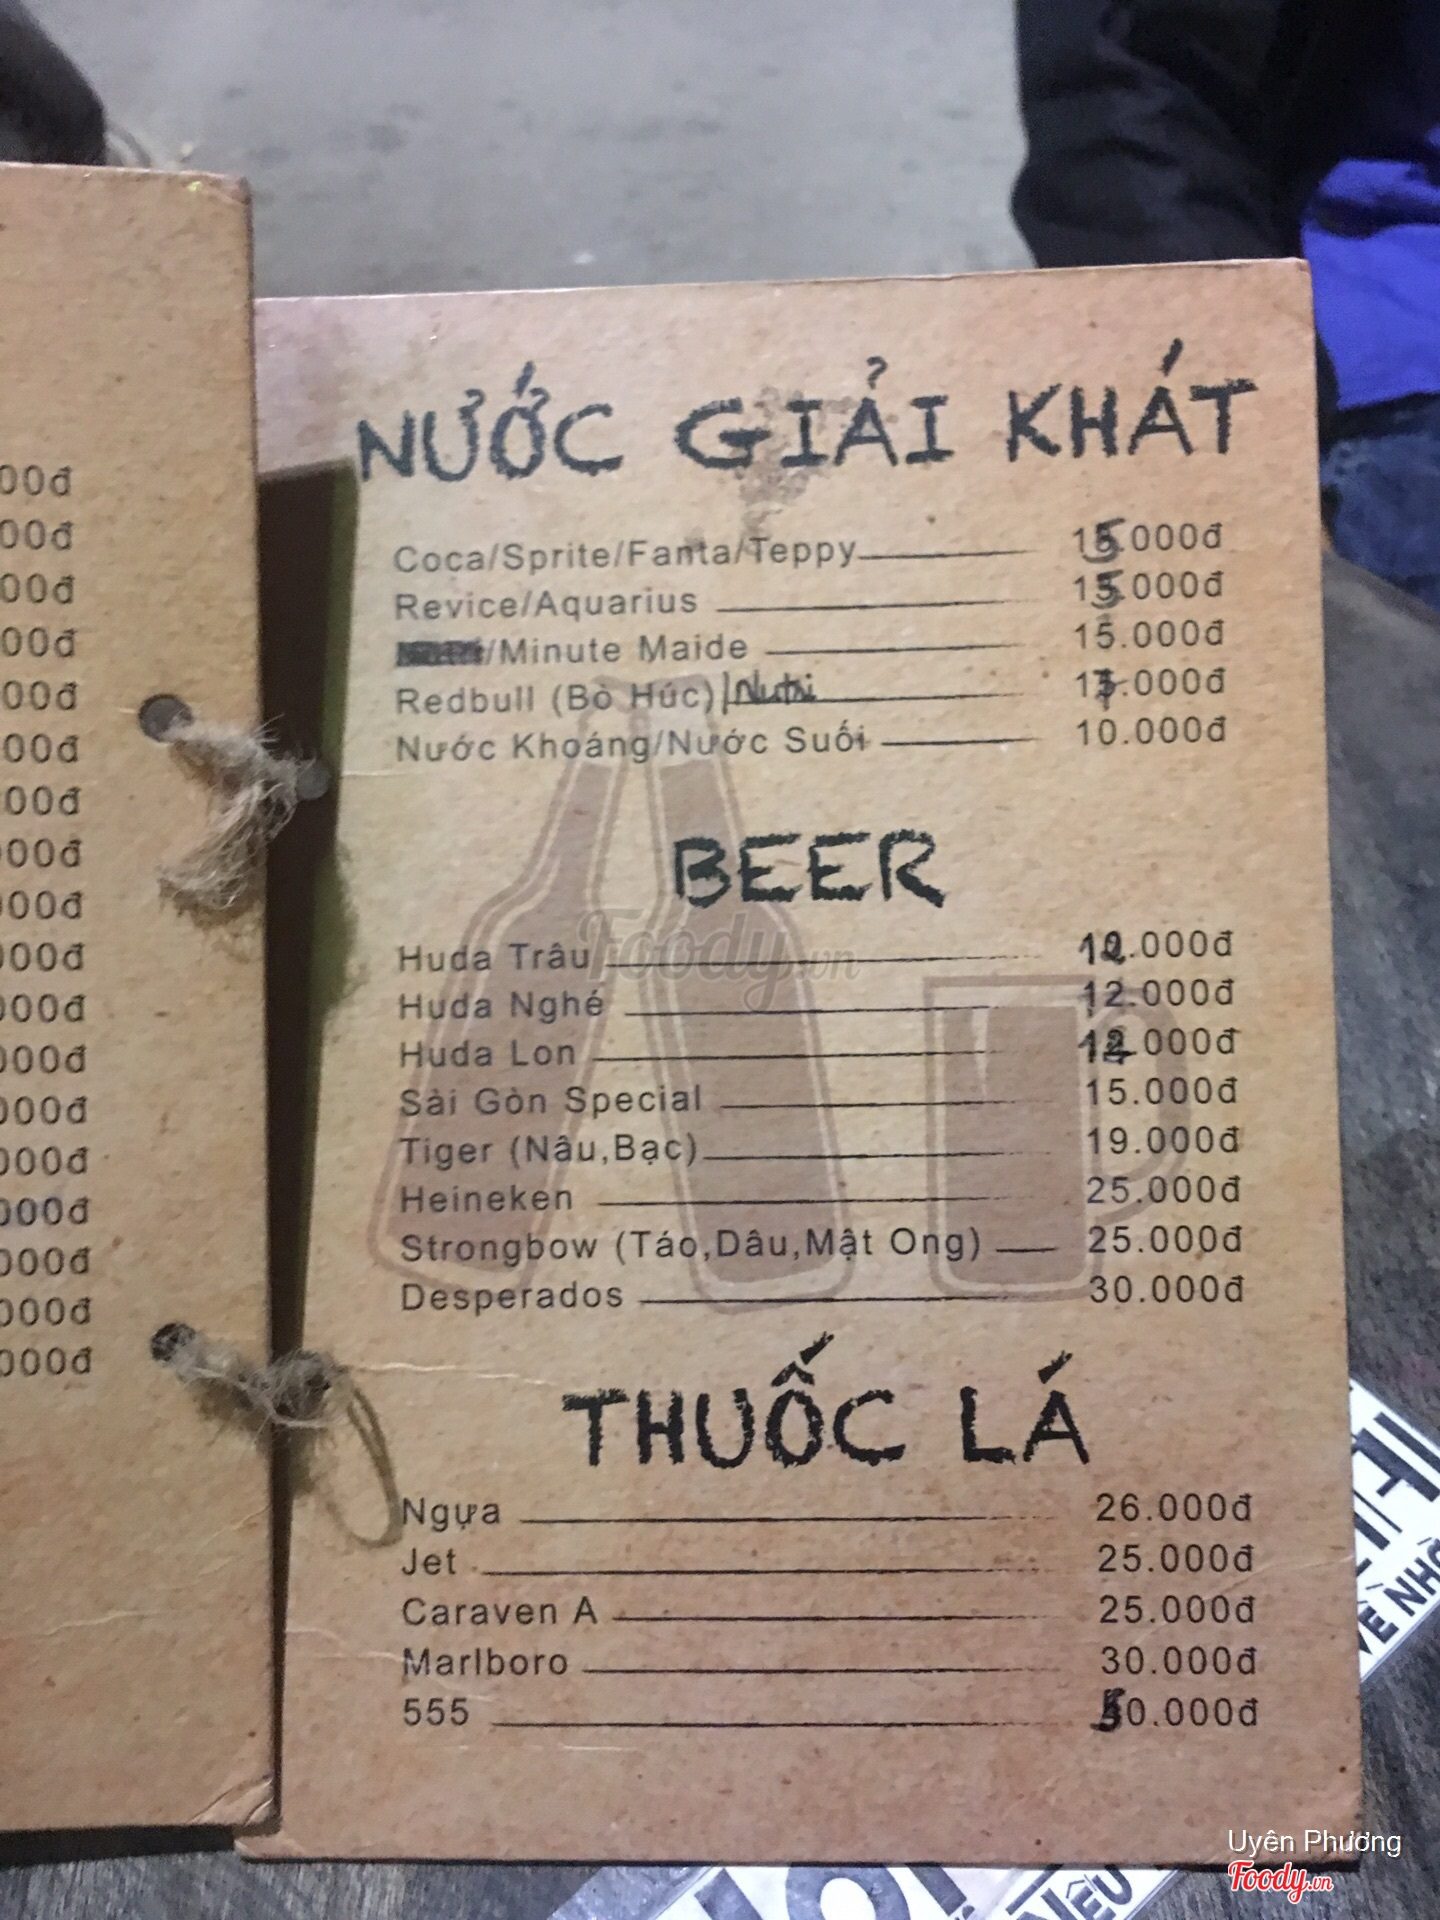 00đ
00đ
00đ
00đ
00đ
00đ
00đ
000đ
000đ
000đ
000đ
000đ
000đ
000đ
000đ
000đ
000đ
000đ
NƯỚC GIẢI KHÁT
Coca/Sprite/Fanta/Teppy 15.000đ
Revice/Aquarius 15.000đ
/Minute Maide 15.000đ
Redbull (Bò Húc)/Nutri .000đ
Nước Khoáng/Nước Suối 10.000đ
BEER
Huda Trâu 12.000đ
Huda Nghé 12.000đ
Huda Lon .000đ
Sài Gòn Special 15.000đ
Tiger (Nâu,Bạc) 19.000đ
Heineken 25.000đ
Strongbow (Táo,Dâu,Mật Ong) 25.000đ
Desperados 30.000đ
THUỐC LÁ
Ngựa 26.000đ
Jet 25.000đ
Caraven A 25.000đ
Marlboro 30.000đ
555 50.000đ
Foody.vn
VỀ NHÔ
NẾU
Uyên Phương
Foody.vn